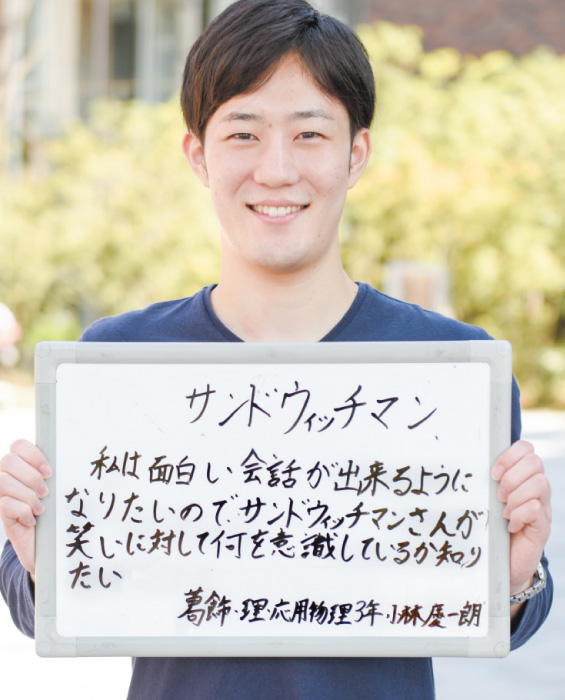 サンドウィッチマン
私は面白い会話が出来るように
なりたいので、サンドウィッチマンさんが
笑いに対して何を意識しているか知り
たい
葛飾・理・応用物理3年・小林慶一朗